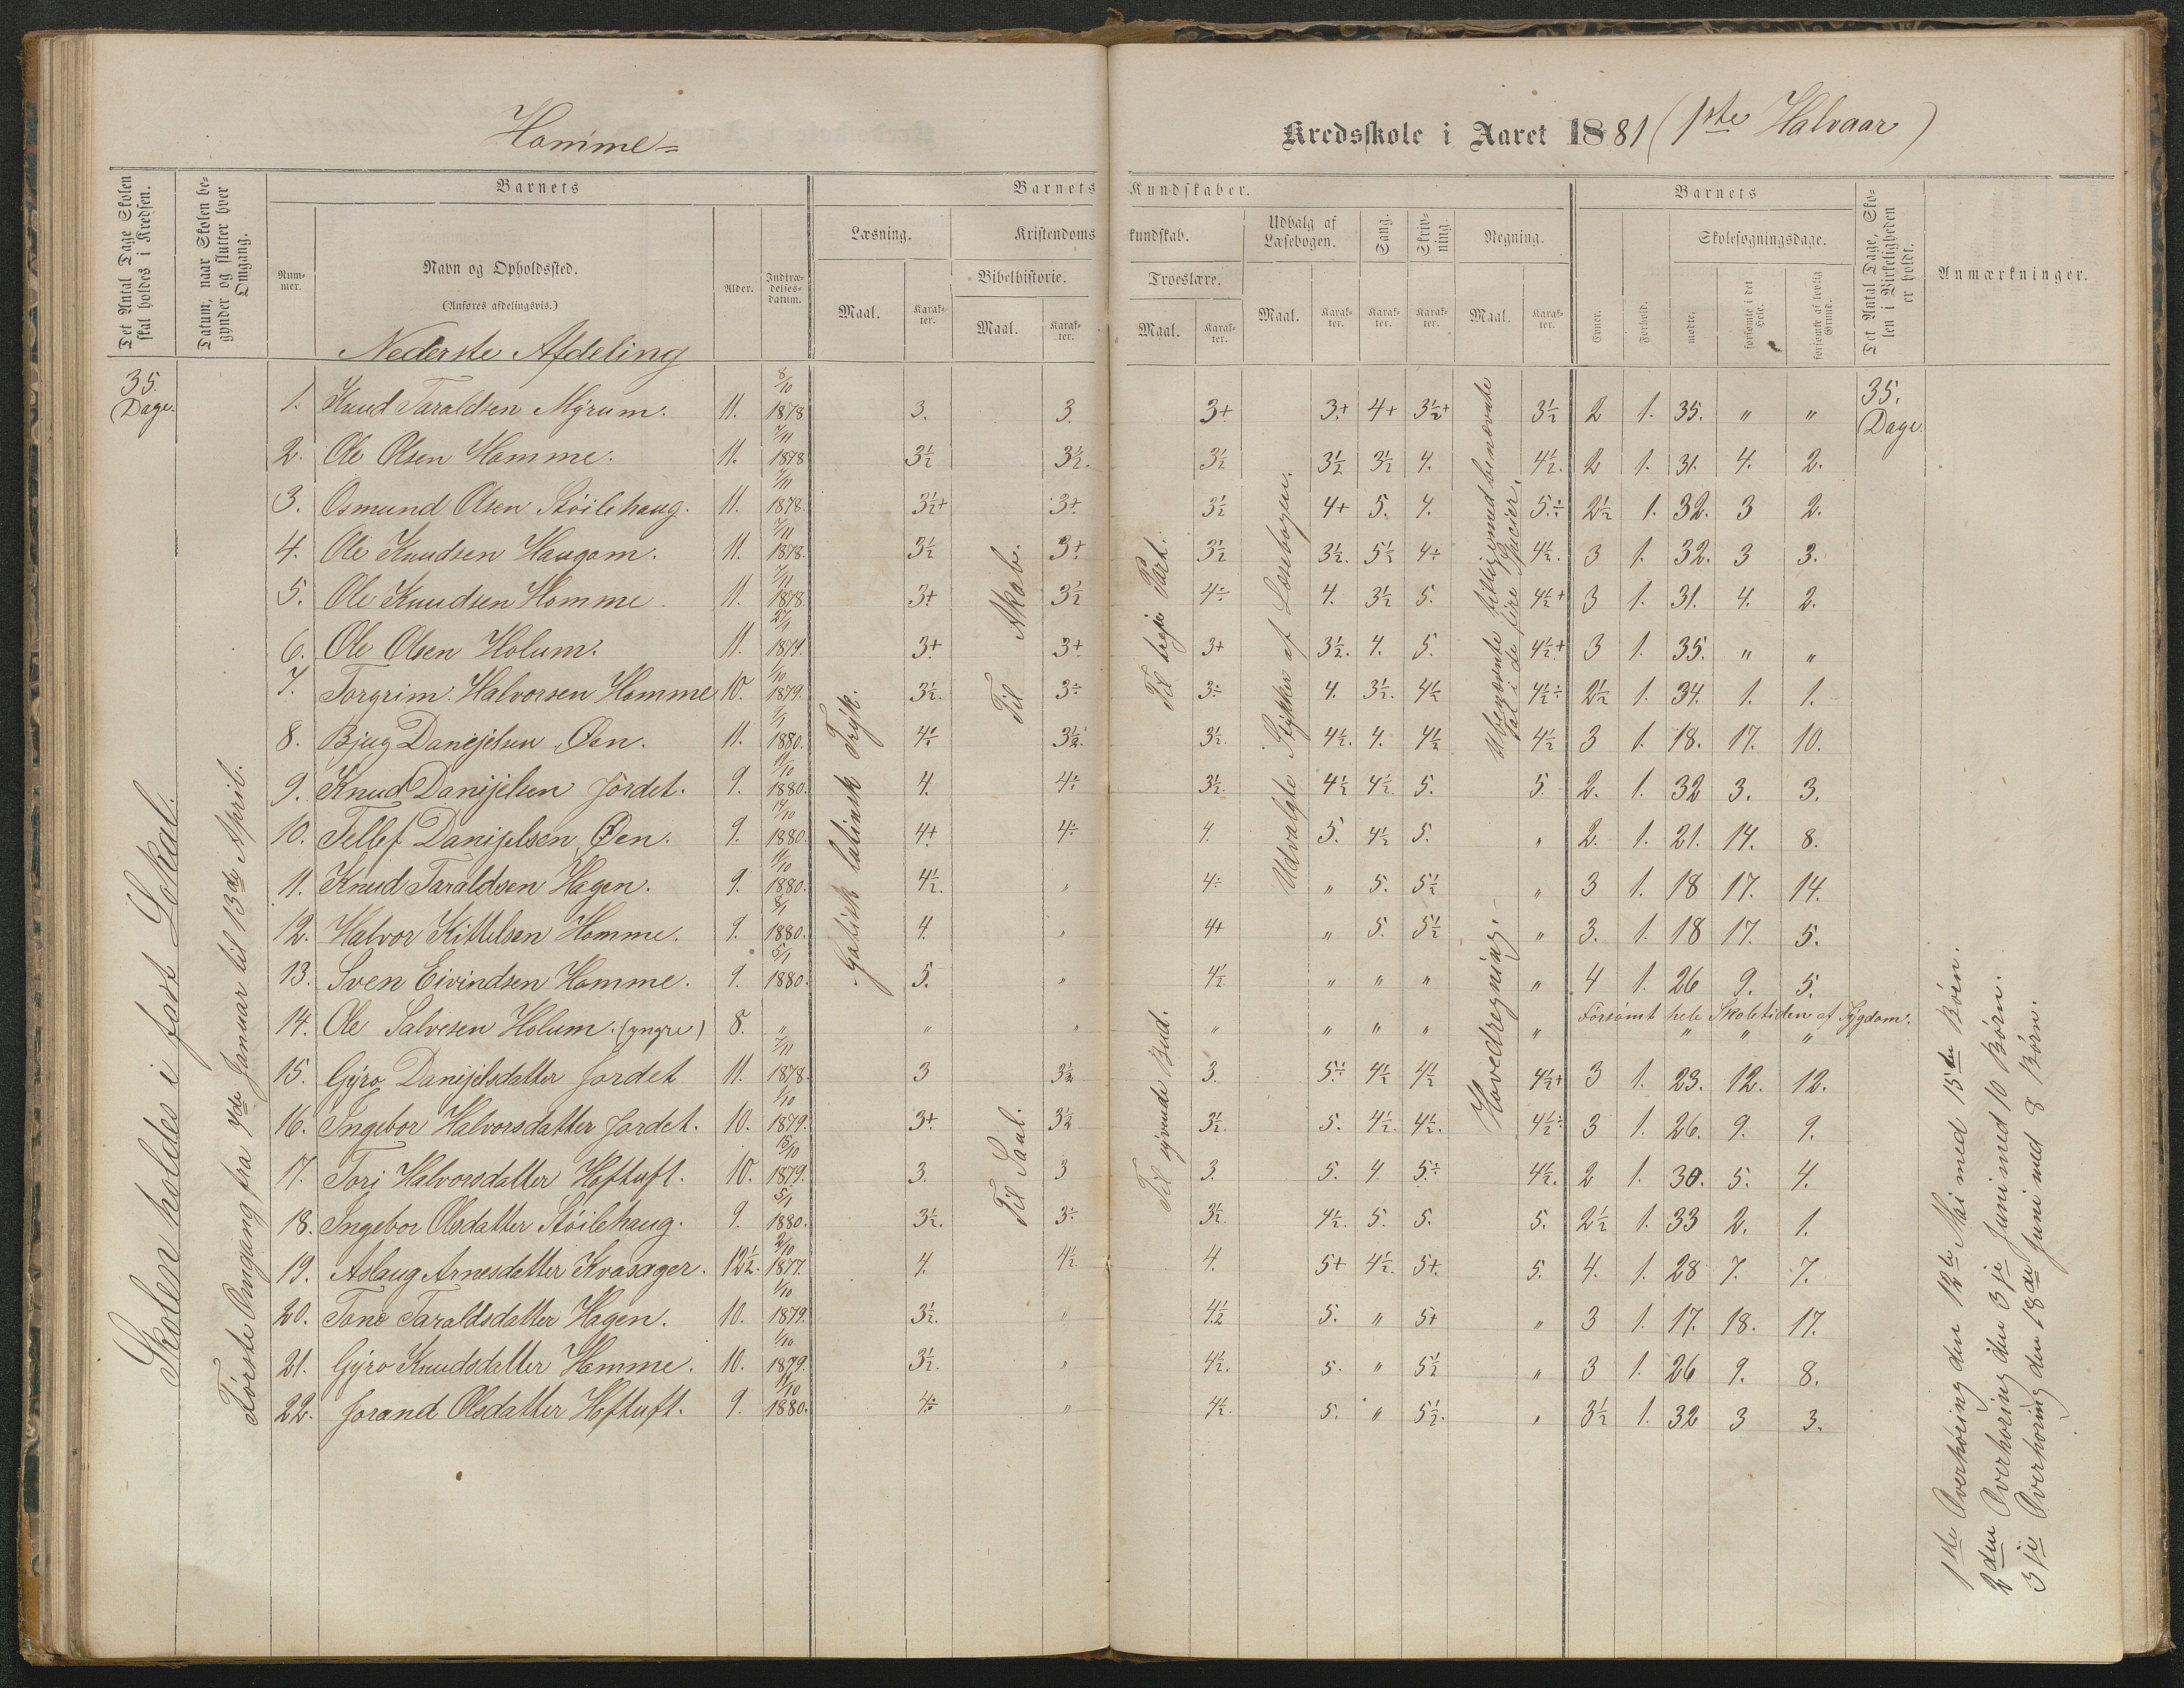 Homme-
Kredsskole i Aaret 1881 (1ste Halvaar)
Det Antal Dage Skolen skal holdes i Kredsen.
Datum, naar Skolen begynder og slutter hver Omgang.
Barnets
Barnets Kundskaber.
Barnets
Det Antal Dage, Skolen i Virkeligheden er holdt.
Anmærkninger.
Nummer.
Navn og Opholdssted.
(Anføres afdelingsvis.)
Alder.
Indtrædelsesdatum.
Læsning.
Kristendomskundskab.
Udvalg af Læsebogen.
Sang.
Skrivning.
Regning.
Evner.
Forhold.
Skolesøgningsdage.
Bibelhistorie.
Troeslære.
Maal. Karakter. Maal. Karakter. Maal. Karakter. Maal. Karakter. Karakter. Karakter. Maal. Karakter.
mødte. forsømte i det Hele. forsømte af lovlig Grund.
Nederste Afdeling
35. Dage.
35. Dage.
1. Knud Taraldsen Myrum. 11. 8/10 1878 3. 3. 3+ 3+ 4+ 3½+ 3½ 2 1. 35. " "
2. Ole Olsen Homme. 11. 7/11 1878 3½ 3½. 3½ 3½ 3½ 4. 4½. 2 1. 31. 4. 2.
3. Osmund Olsen Støilehaug. 11. 7/11 1878. 3½+ 3+ 3½ 4+ 5. 4. 5÷ 2½ 1. 32. 3 2.
4. Ole Knudsen Haugom. 11. 7/11 1878. 3½ 3+ 3½ 3½. 5½ 4÷ 4½. 3 1. 32. 3 3.
5. Ole Knudsen Homme. 11. 7/11 1878. 3+ 3½ 4÷ 4. 3½ 5. 4½+ 3 1. 31. 4. 2.
6. Ole Olsen Holum. 11. 1879. 3+ 3+ 3+ 3½. 4. 5. 4½+ 3 1. 35. " "
7. Torgrim Halvorsen Homme 10. 1/10 1879. 3½. 3÷ 3÷ 4. 3½. 4½ 4½÷ 2½ 1. 34. 1. 1.
8. Bjug Danejelsen Øen. 11. 1880. 4÷ 3½ 3½. 4½. 4. 4½ 4½ 3 1. 18. 17. 10.
9. Knud Danijelsen Jordet. 9. 11/10 1880. 4. 4÷ 3½. 4½ 4½. 5. 5. 2. 1. 32 3. 3.
10. Tellef Danijelsen Øen. 9. 14/10 1880. 4+ 4÷ 4. 5. 4½ 5. " 2. 1. 21. 14. 8.
11. Knud Taraldsen Hagen. 9. 11/10 1880. 4½. " 4÷ " 5. 5½ " 3 1. 18 17. 14.
12. Halvor Kittelsen Homme. 9. 8/1 1880. 4. " 4+ " 5. 5½ " 3. 1. 18 17. 5.
13. Sven Eivindsen Homme. 9. 5/1 1880. 5. " 4½ " " " " 4 1. 26 9. 5.
14. Ole Salvesen Holum. (yngre) 8. " " " " " " " " Forsømt hele Skoletiden af Sygdom. " " "
15. Gyro Danijelsdatter Jordet 11. 7/11 1878. 3 3½ 3. 5÷ 4½ 4½ 4½+ 3 1. 23. 12. 12.
16. Ingebor Halvorsdatter Jordet. 10. 1/10 1879. 3+ 3½ 3½. 5. 4½. 4½. 4½÷ 3 1. 26. 9. 9.
17. Tori Halvorsdatter Hoftuft. 10. 15/10 1879. 3. 3 3. 5. 4 5÷ 4½. 2 1. 30. 5. 4.
18. Ingebor Olsdatter Støilehaug. 9. 5/1 1880. 3½. 3÷ 3½. 4½. 5. 5. 5. 2½ 1. 33 2. 1.
19. Aslaug Arnesdatter Kvasager. 12½. 2/10 1877. 4. 4½ 4. 5+ 4½. 5+ 5. 4. 1. 28 7. 7.
20. Tone Taraldsdatter Hagen. 10. 1/10 1879. 3½. " 4½ 5. " 5+ " 3 1. 17. 18. 17.
21. Gyro Knudsdatter Homme. 10. 1/10 1879. 3½. " 4½. 5. " 5½ " 3 1. 26 9. 8.
22. Jorand Olsdatter Hoftuft. 9. 11/10 1880. 4÷ " 4½. 5. " 5½. " 3½ 1. 32 3 3.
Skolen holdes i fast Lokal.
Første Omgang fra 7de Januar til 13de April.
Gotisk latinsk Tryk.
Til Akab.
Til Saul.
Til treje Part.
Til syvende Bud.
Udvalgte Stykker af Læsebogen.
Ubenævnte tillige med benævnte
Tal i de fire Specier.
Hovedregning.
1ste Overhøring den 12te Mai med 15te Børn.
2den Overhøring den 3je Juni med 10 Børn.
3je Overhøring den 18de Juni med 8 Børn.